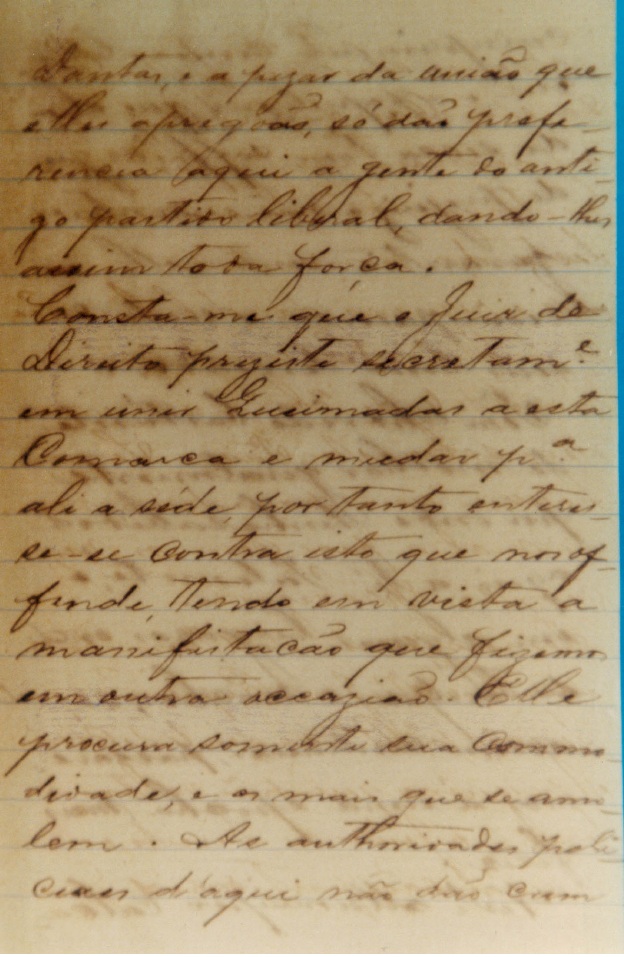 Dantas, e a pezar da união que
elles apregoão, só dão prefe-
rencia aqui a gente do anti-
go partido liberal, dando-lhes
assim toda força.
Consta-me que o Juiz de
Direito prejiste secretam.e
em unir Queimadas a esta
Comarca e mudar p.a
ali a séde, por tanto enteres-
se-se contra isto que nos of-
fende, tendo em vista a
manifestação que fizemos
em outra occazião. Elle
procura somente sua Commo-
didade, e os mais que se amo-
lem. As authoridades poli-
ciaes d'aqui não dão cum